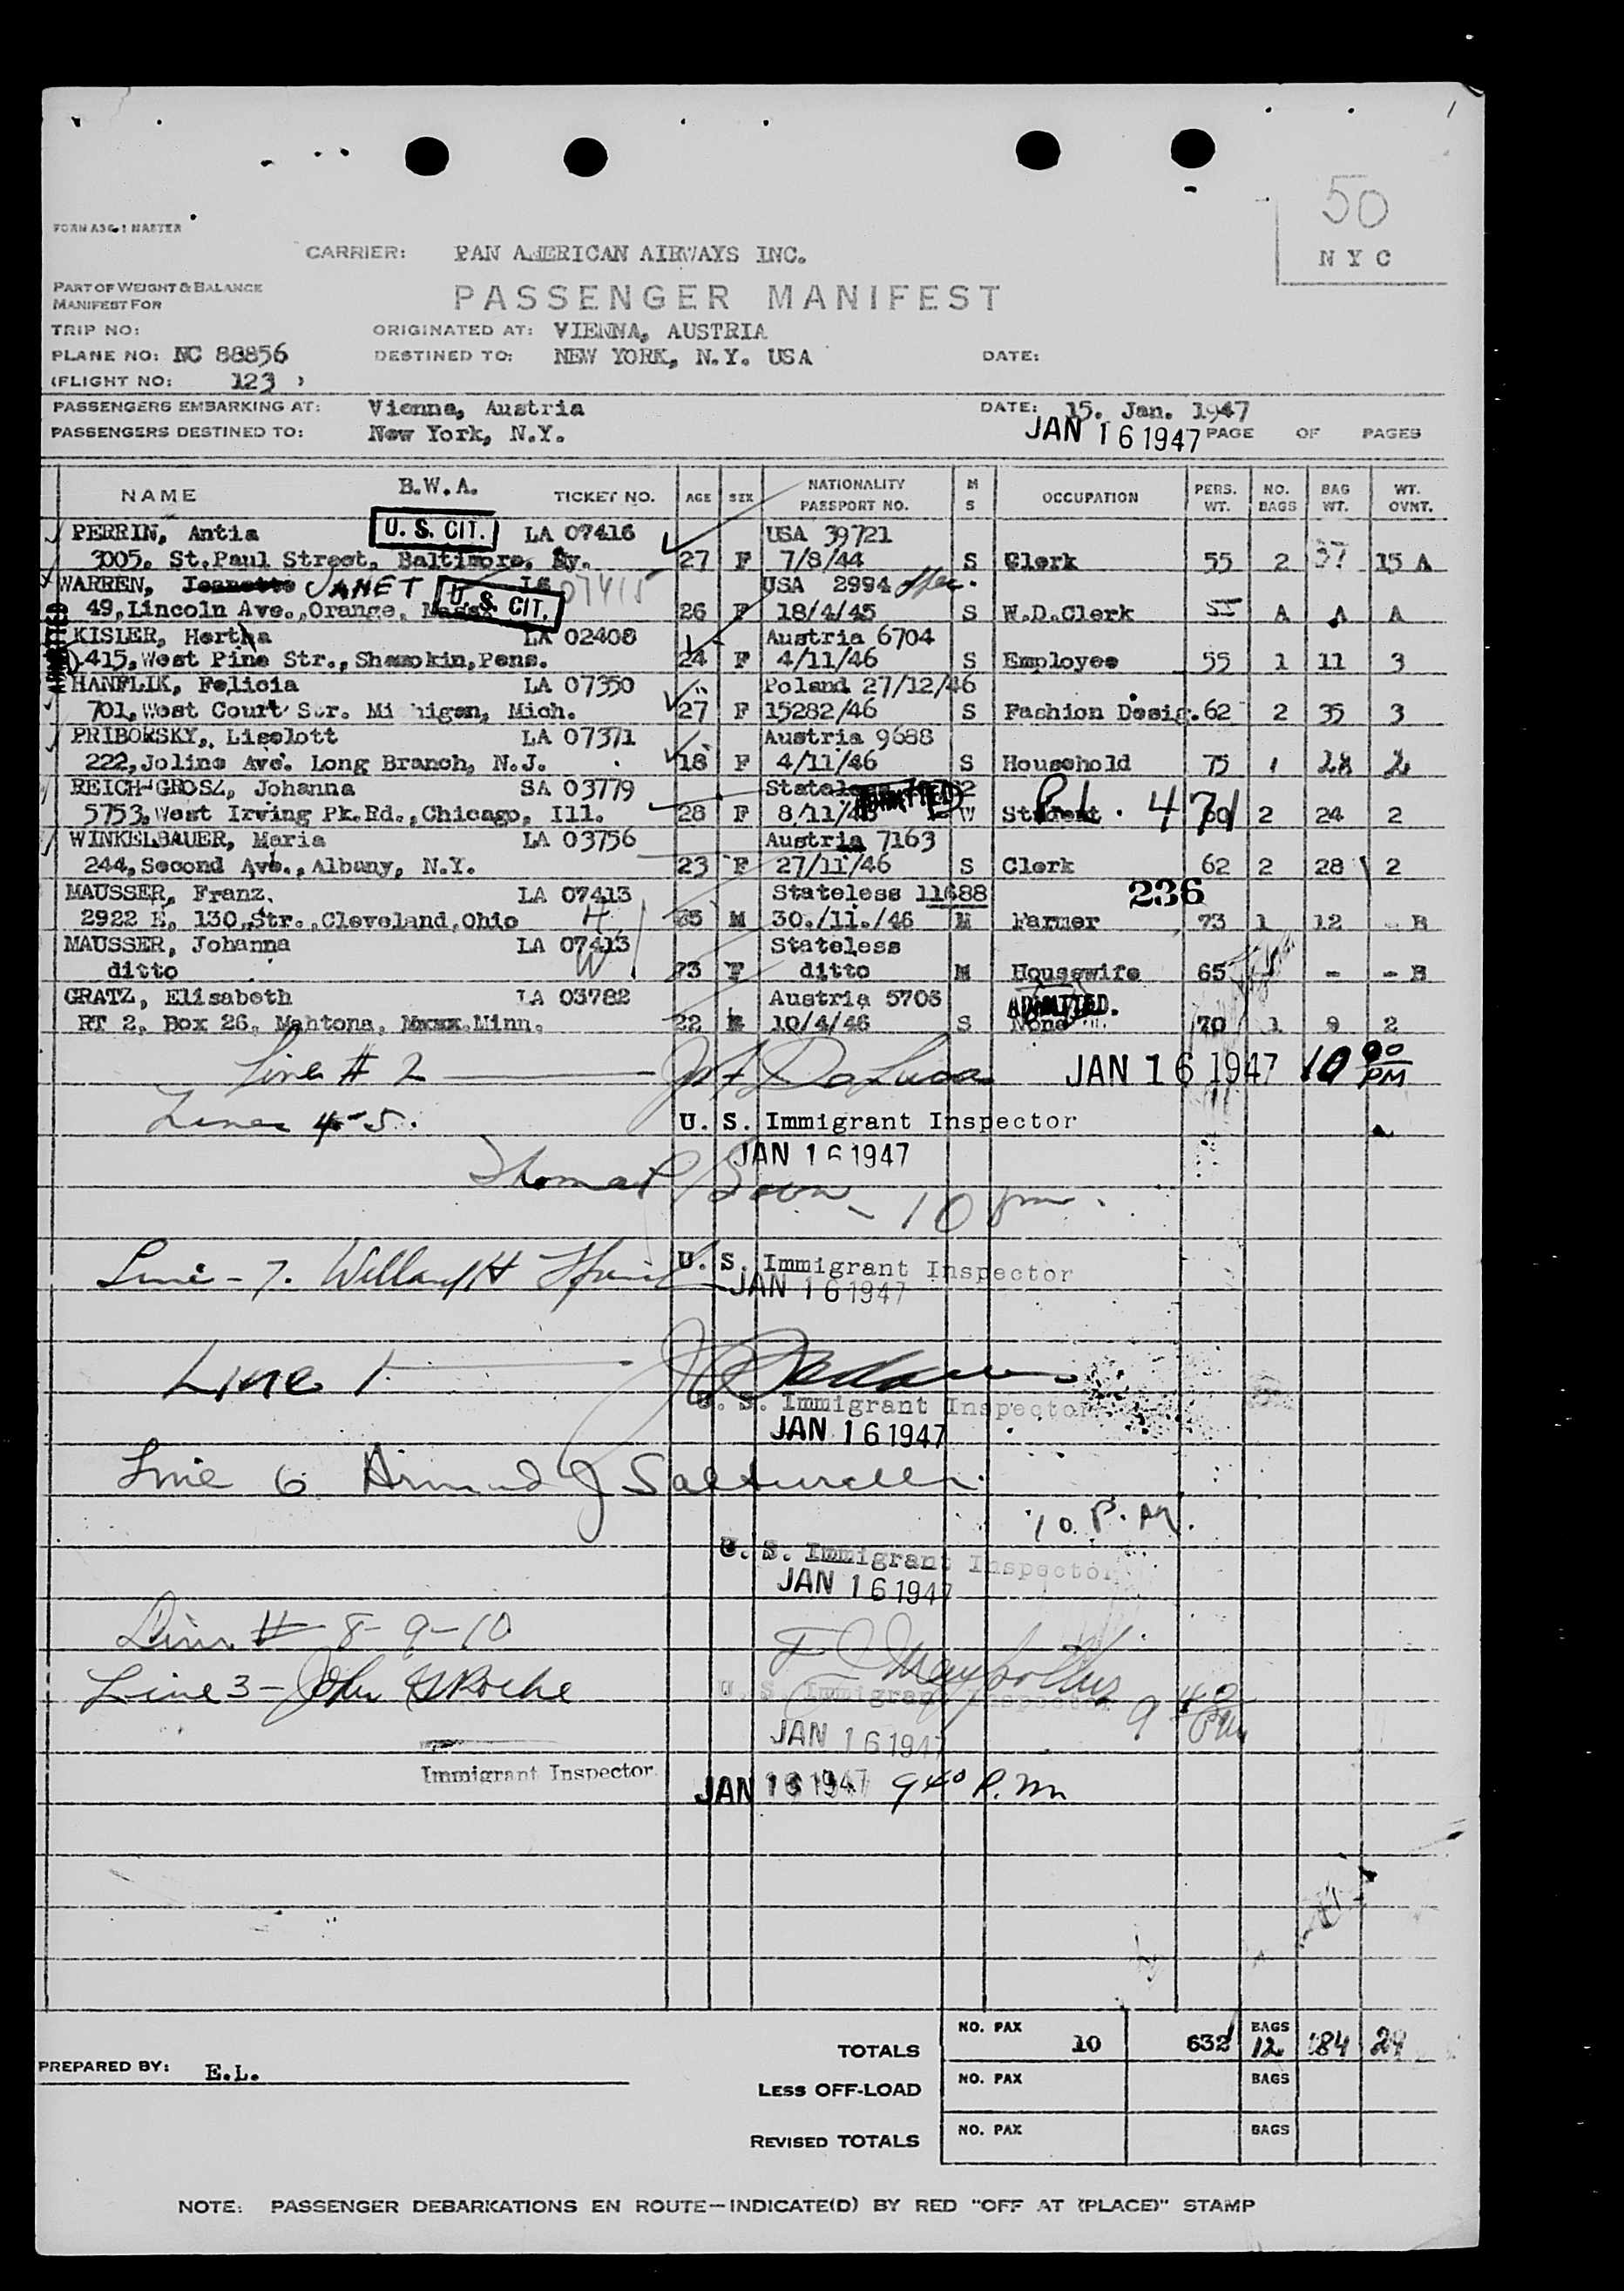 50
NYC
FORM A36-1 MASTER
CARRIER: PAN AMERICAN AIRWAYS INC.
PART OF WEIGHT & BALANCE
MANIFEST FOR
PASSENGER MANIFEST
TRIP NO: ORIGINATED AT: VIENNA, AUSTRIA
PLANE NO: NC 88856 DESTINED TO: NEW YORK, N.Y. USA DATE:
(FLIGHT NO: 123 )
PASSENGERS EMBARKING AT: Vienna, Austria DATE: 15. Jan. 1947
PASSENGERS DESTINED TO: New York, N.Y. JAN 16 1947 PAGE OF PAGES
NAME B.W.A. TICKET NO. AGE SEX NATIONALITY PASSPORT NO. M S OCCUPATION PERS. WT. NO. BAGS BAG WT. WT. OVNT.
PERRIN, Antia U. S. CIT. LA 07416 USA 39721
3005. St.Paul Street, Baltimore, 27 F 7/8/44 S Clerk 55 2 37 15 A
WARREN, Jeanette JANET U. S. CIT. LA 07415 USA 2994
49,Lincoln Ave.,Orange, Mass. 26 F 18/4/45 S W.D.Clerk 55 A A A
KISLER, Hertha LA 02408 Austria 6704
415,West Pine Str.,Shamokin,Pens. 24 F 4/11/46 S Employee 55 1 11 3
HANFLIK, Felicia LA 07350 Poland 27/12/46
701,West Court Str. Mi higen, Mich. 27 F 15282/46 S Fashion Desig. 62 2 35 3
PRIBORSKY, Liselott LA 07371 Austria 9688
222,Joline Ave. Long Branch, N.J. 18 F 4/11/46 S Household 75 1 28 2
REICH-GROSZ, Johanna SA 03779 Stateless ADMITTED
5753,West Irving Pk.Rd.,Chicago, Ill. 28 F 8/11/46 W Student P.L. 471 60 2 24 2
WINKELBAUER, Maria LA 03756 Austria 7163
244,Second Ave.,Albany, N.Y. 23 F 27/11/46 S Clerk 62 2 28 2
MAUSSER, Franz. LA 07413 Stateless 11688 236
2922 E, 130,Str.,Cleveland,Ohio H 65 M 30./11./46 M Farmer 73 1 12 - B
MAUSSER, Johanna LA 07413 Stateless
ditto W 73 F ditto M Housewife 65 - - B
GRATZ, Elisabeth LA 03782 Austria 5703 ADMITTED.
RT 2, Box 26, Mahtona, Minn. 22 10/4/46 S None 70 1 9 2
Line # 2 JAN 16 1947 10 00 PM
Lines 4-5. U. S. Immigrant Inspector
JAN 16 1947
Thomas 10 pm.
Line - 7. Willard H U. S. Immigrant Inspector
JAN 16 1947
Line 1.
U. S. Immigrant Inspector
JAN 16 1947
Line 6 Armand J
10 P.M.
U. S. Immigrant Inspector
JAN 16 1947
Line # 8-9-10
Line 3 - John Roche U. S. Immigrant Inspector 9 40 pm
JAN 16 1947
Immigrant Inspector JAN 16 1947 9 40 P.m
TOTALS NO. PAX 10 632 BAGS 12 184 29
PREPARED BY: E.L.
LESS OFF-LOAD NO. PAX BAGS
REVISED TOTALS NO. PAX BAGS
NOTE: PASSENGER DEBARKATIONS EN ROUTE—INDICATE(D) BY RED "OFF AT (PLACE)" STAMP